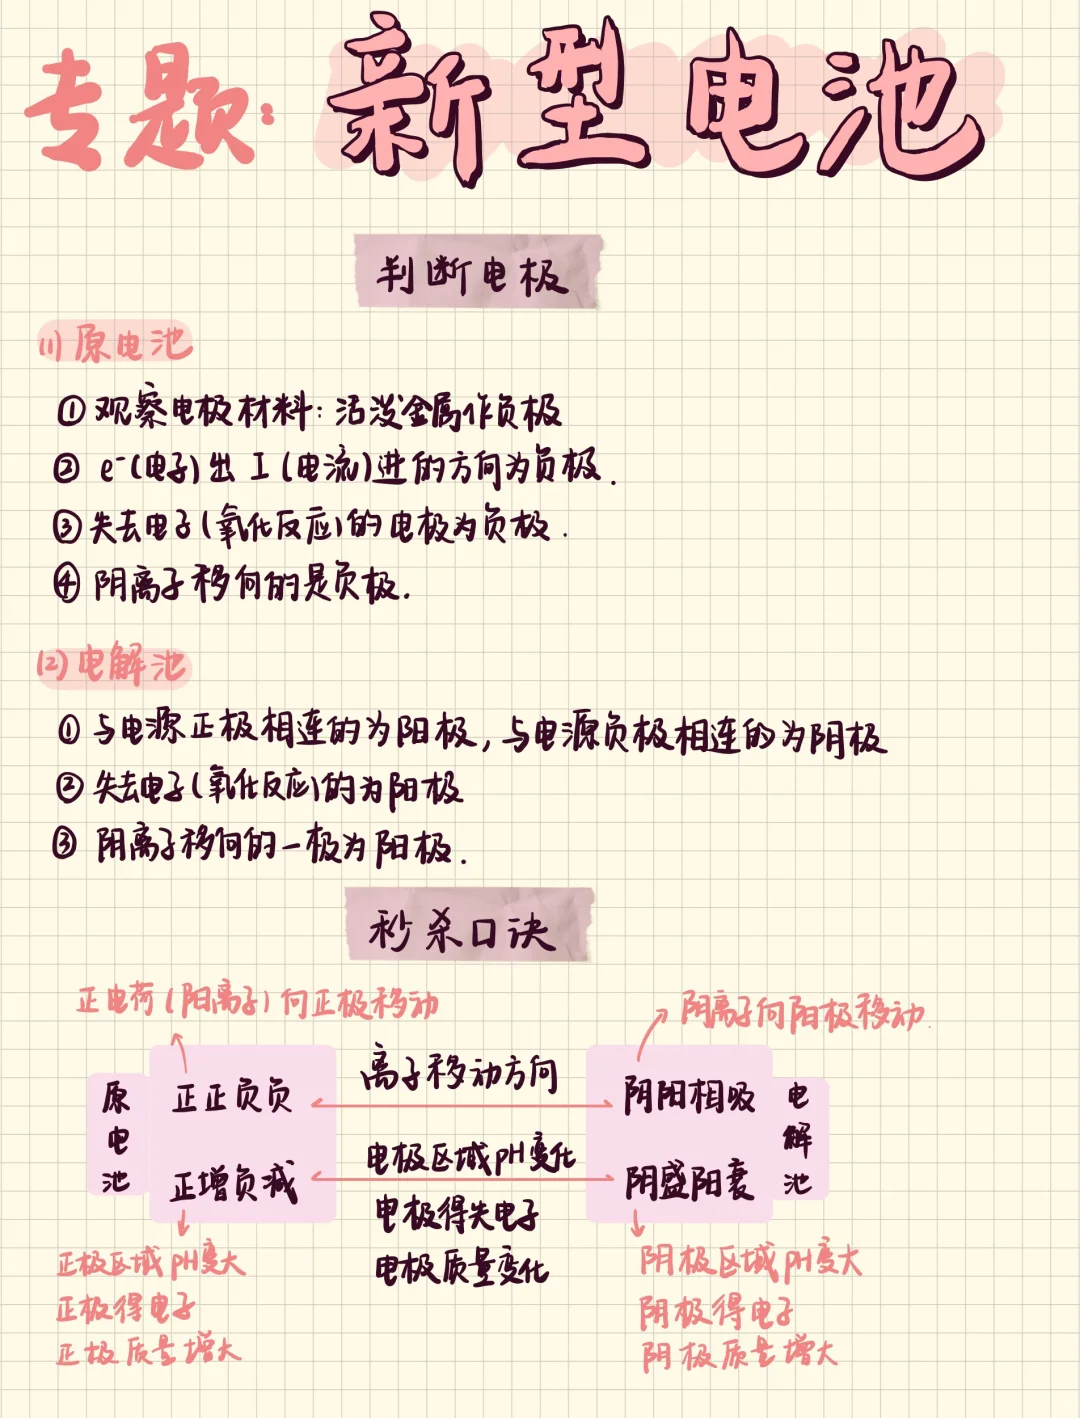 专题:新型电池
判断电极
(1)原电池
① 观察电极材料:活泼金属作负极
② e⁻(电子)出 I(电流)进的方向为负极.
③ 失去电子(氧化反应)的电极为负极.
④ 阴离子移向的是负极.
(2)电解池
① 与电源正极相连的为阳极,与电源负极相连的为阴极
② 失去电子(氧化反应)的为阳极
③ 阴离子移向的一极为阳极.
秒杀口诀
正电荷(阳离子)向正极移动
阴离子向阳极移动.
原电池
正正负负
离子移动方向
阴阳相吸
电解池
正增负减
电极区域pH变化
阴盛阳衰
电极得失电子
电极质量变化
正极区域pH变大
正极得电子
正极质量增大
阴极区域pH变大
阴极得电子
阴极质量增大